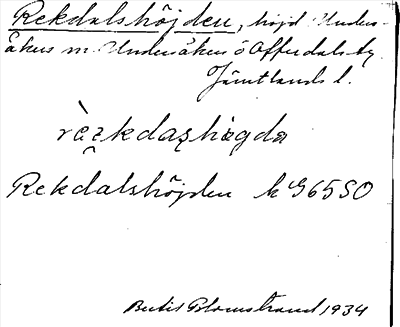 Rekdalshöjden, höjd Under-
åkers sn. Undersåkers o Offerdals tg
Jämtlands l.
rèzkdaʂhøgda
Rekdalshöjden k G65SO
Bertil Blomstrand 1934